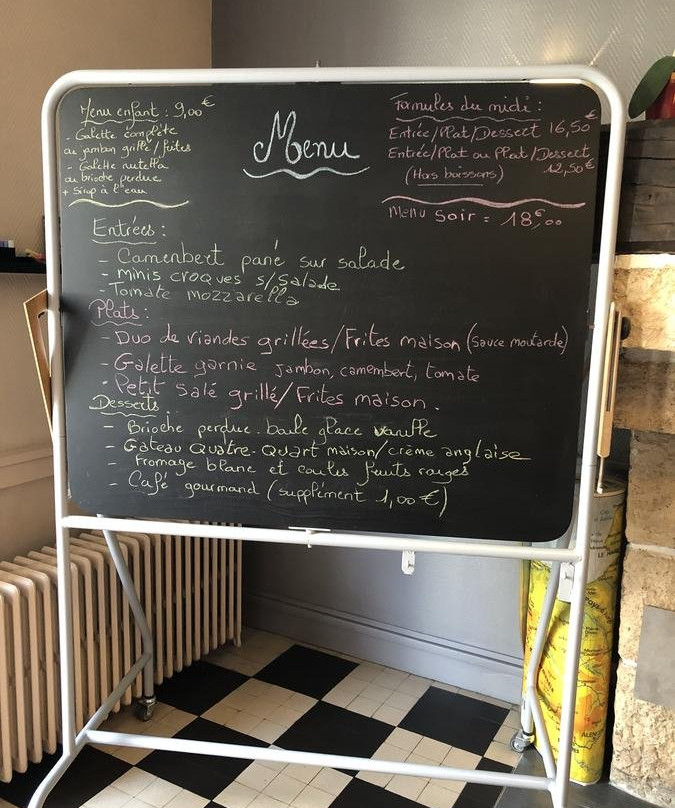 Menu enfant : 9,00 €
- Galette complète
ou jambon grillé / frites
- Galette nutella
ou brioche perdue
+ Sirop à l'eau
Menu
Formules du midi :
Entrée/Plat/Dessert 16,50 €
Entrée/Plat ou Plat/Dessert
12,50 €
(Hors boissons)
Menu Soir = 18€,00
Entrées :
- Camenbert pané sur salade
- Minis croques s/Salade
- Tomate mozzarella
Plats :
- Duo de viandes grillées/Frites maison (Sauce moutarde)
- Galette garnie jambon, camembert, tomate
- Petit Salé grillé/Frites maison.
Desserts
- Brioche perdue. boule glace vanille
- Gateau Quatre-Quart maison/crème anglaise
- Fromage blanc et coulis fruits rouges
- Café gourmand (supplément 1,00 €)